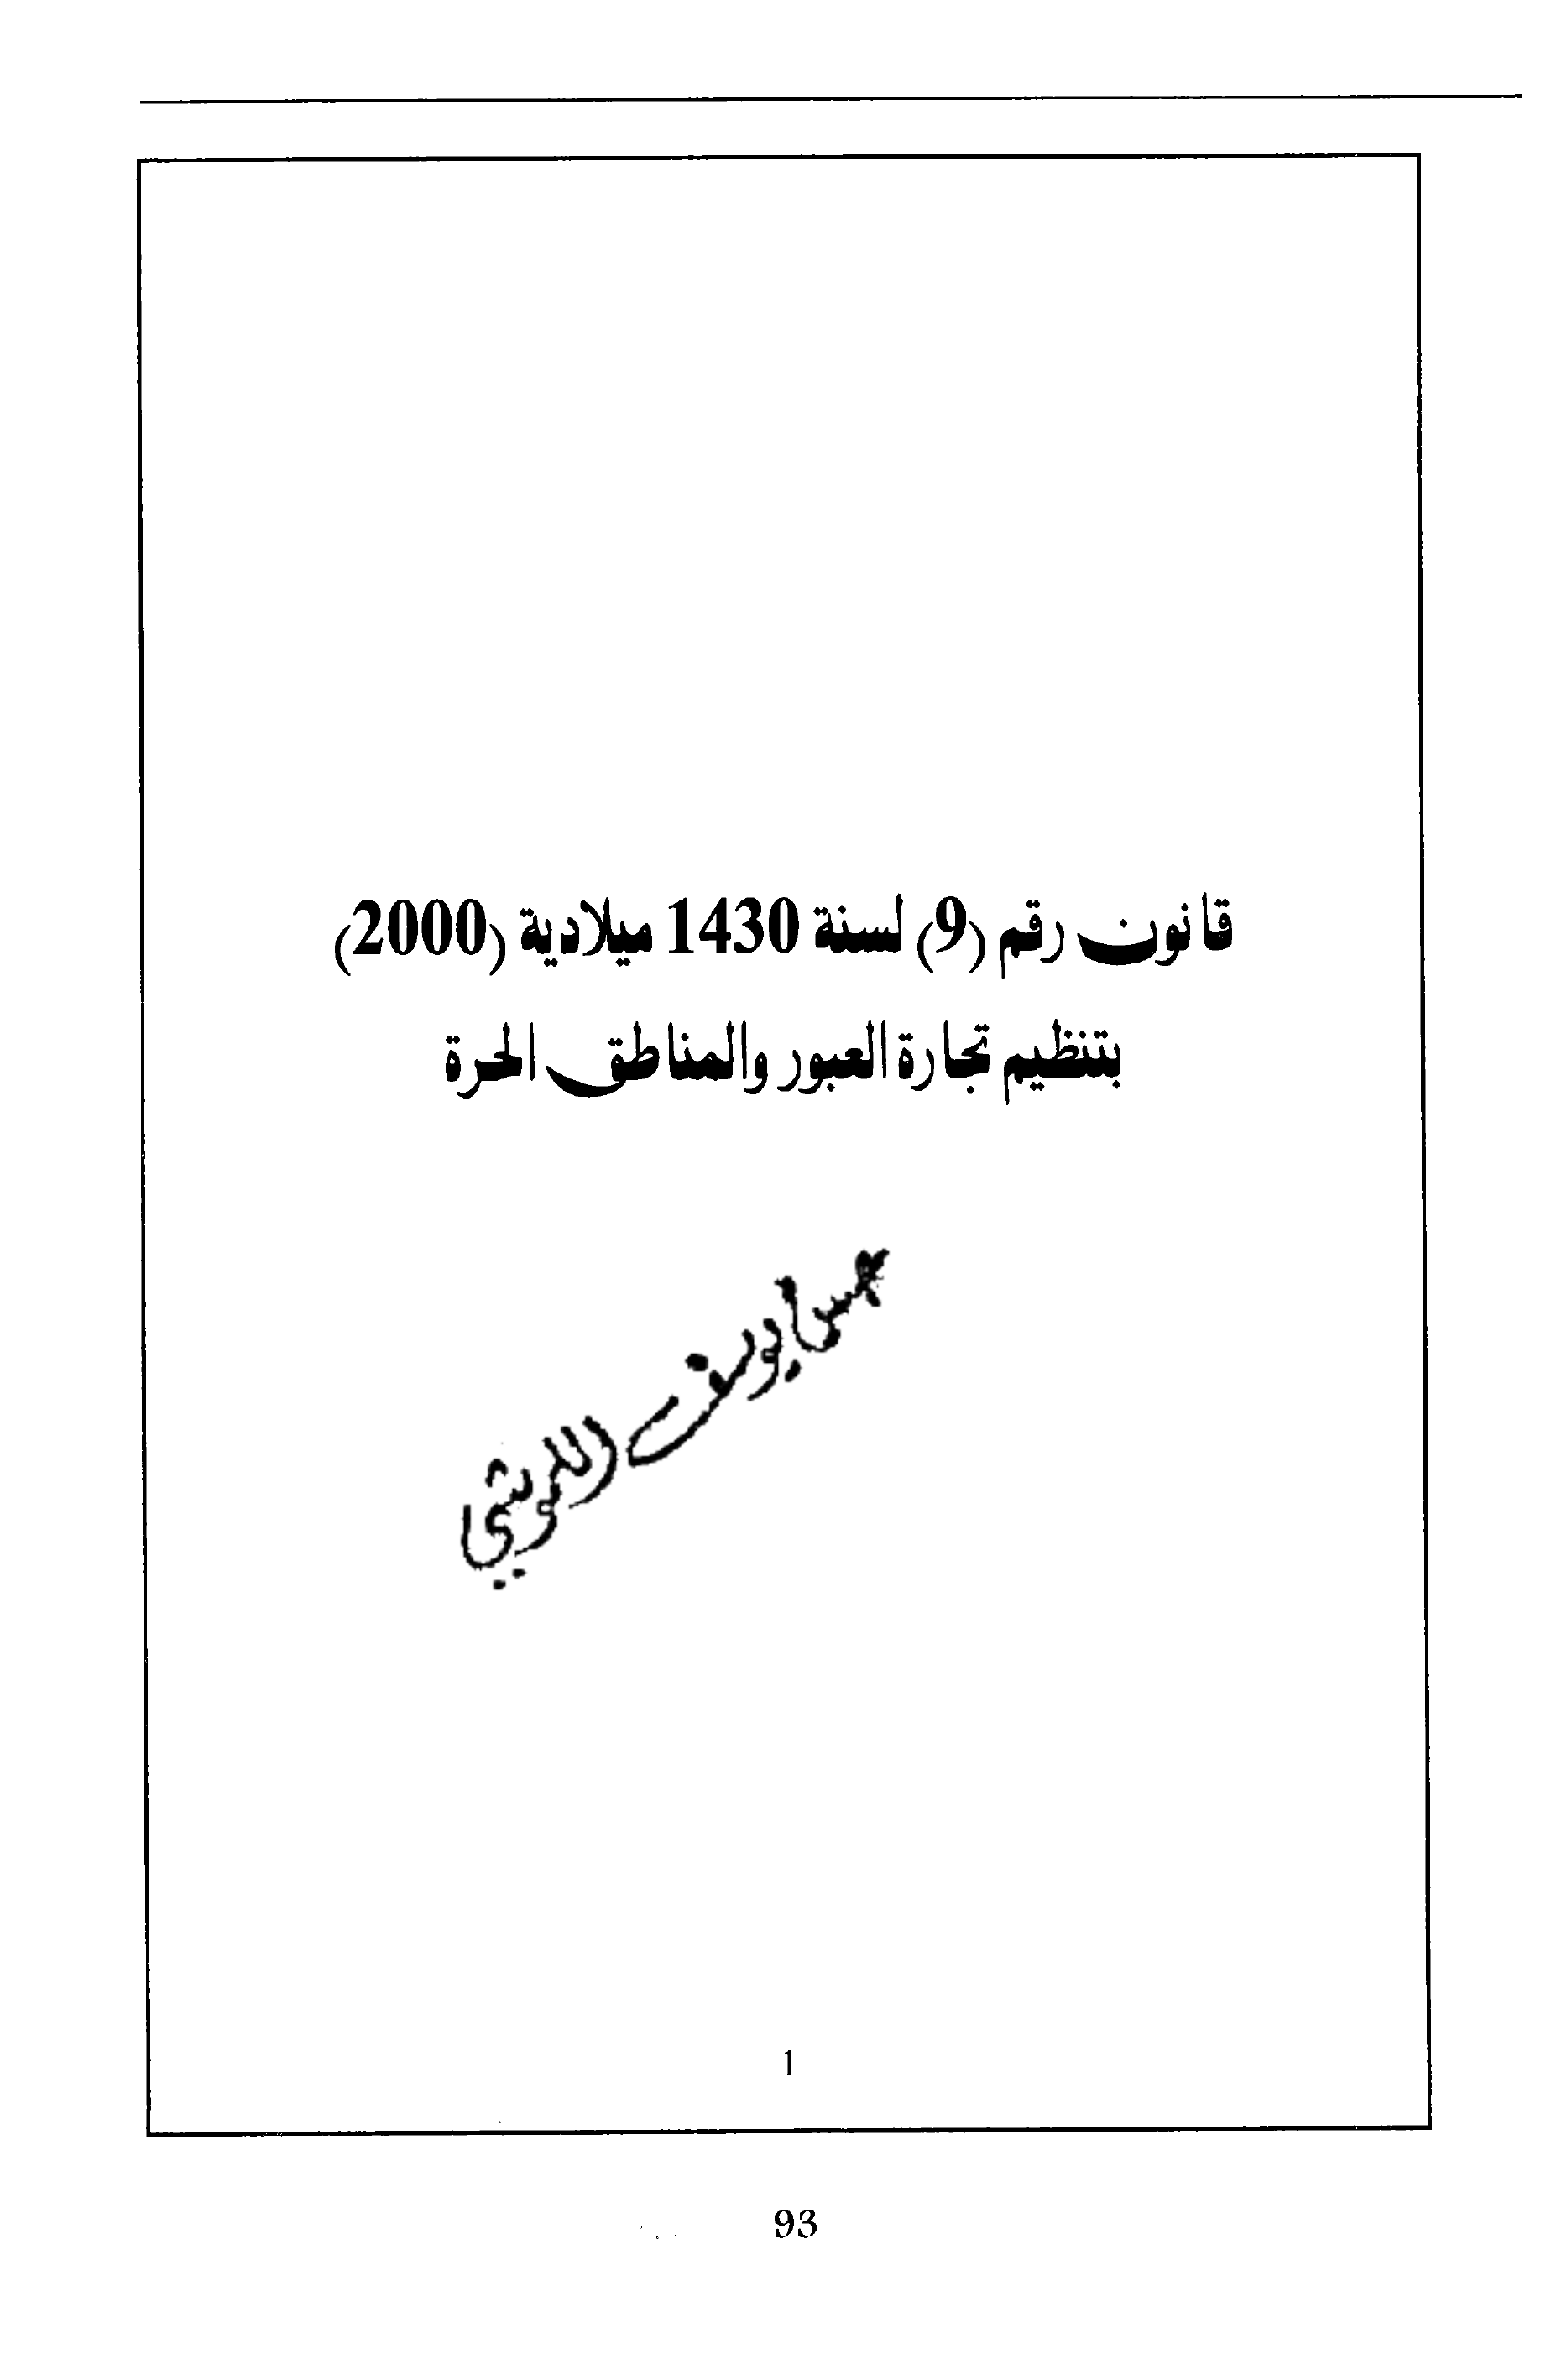 قانون رقم (9) لسنة 1430 ميلادية (2000)
بتنظيم تجارة العبور والمناطق الحرة
يوسف
1
93